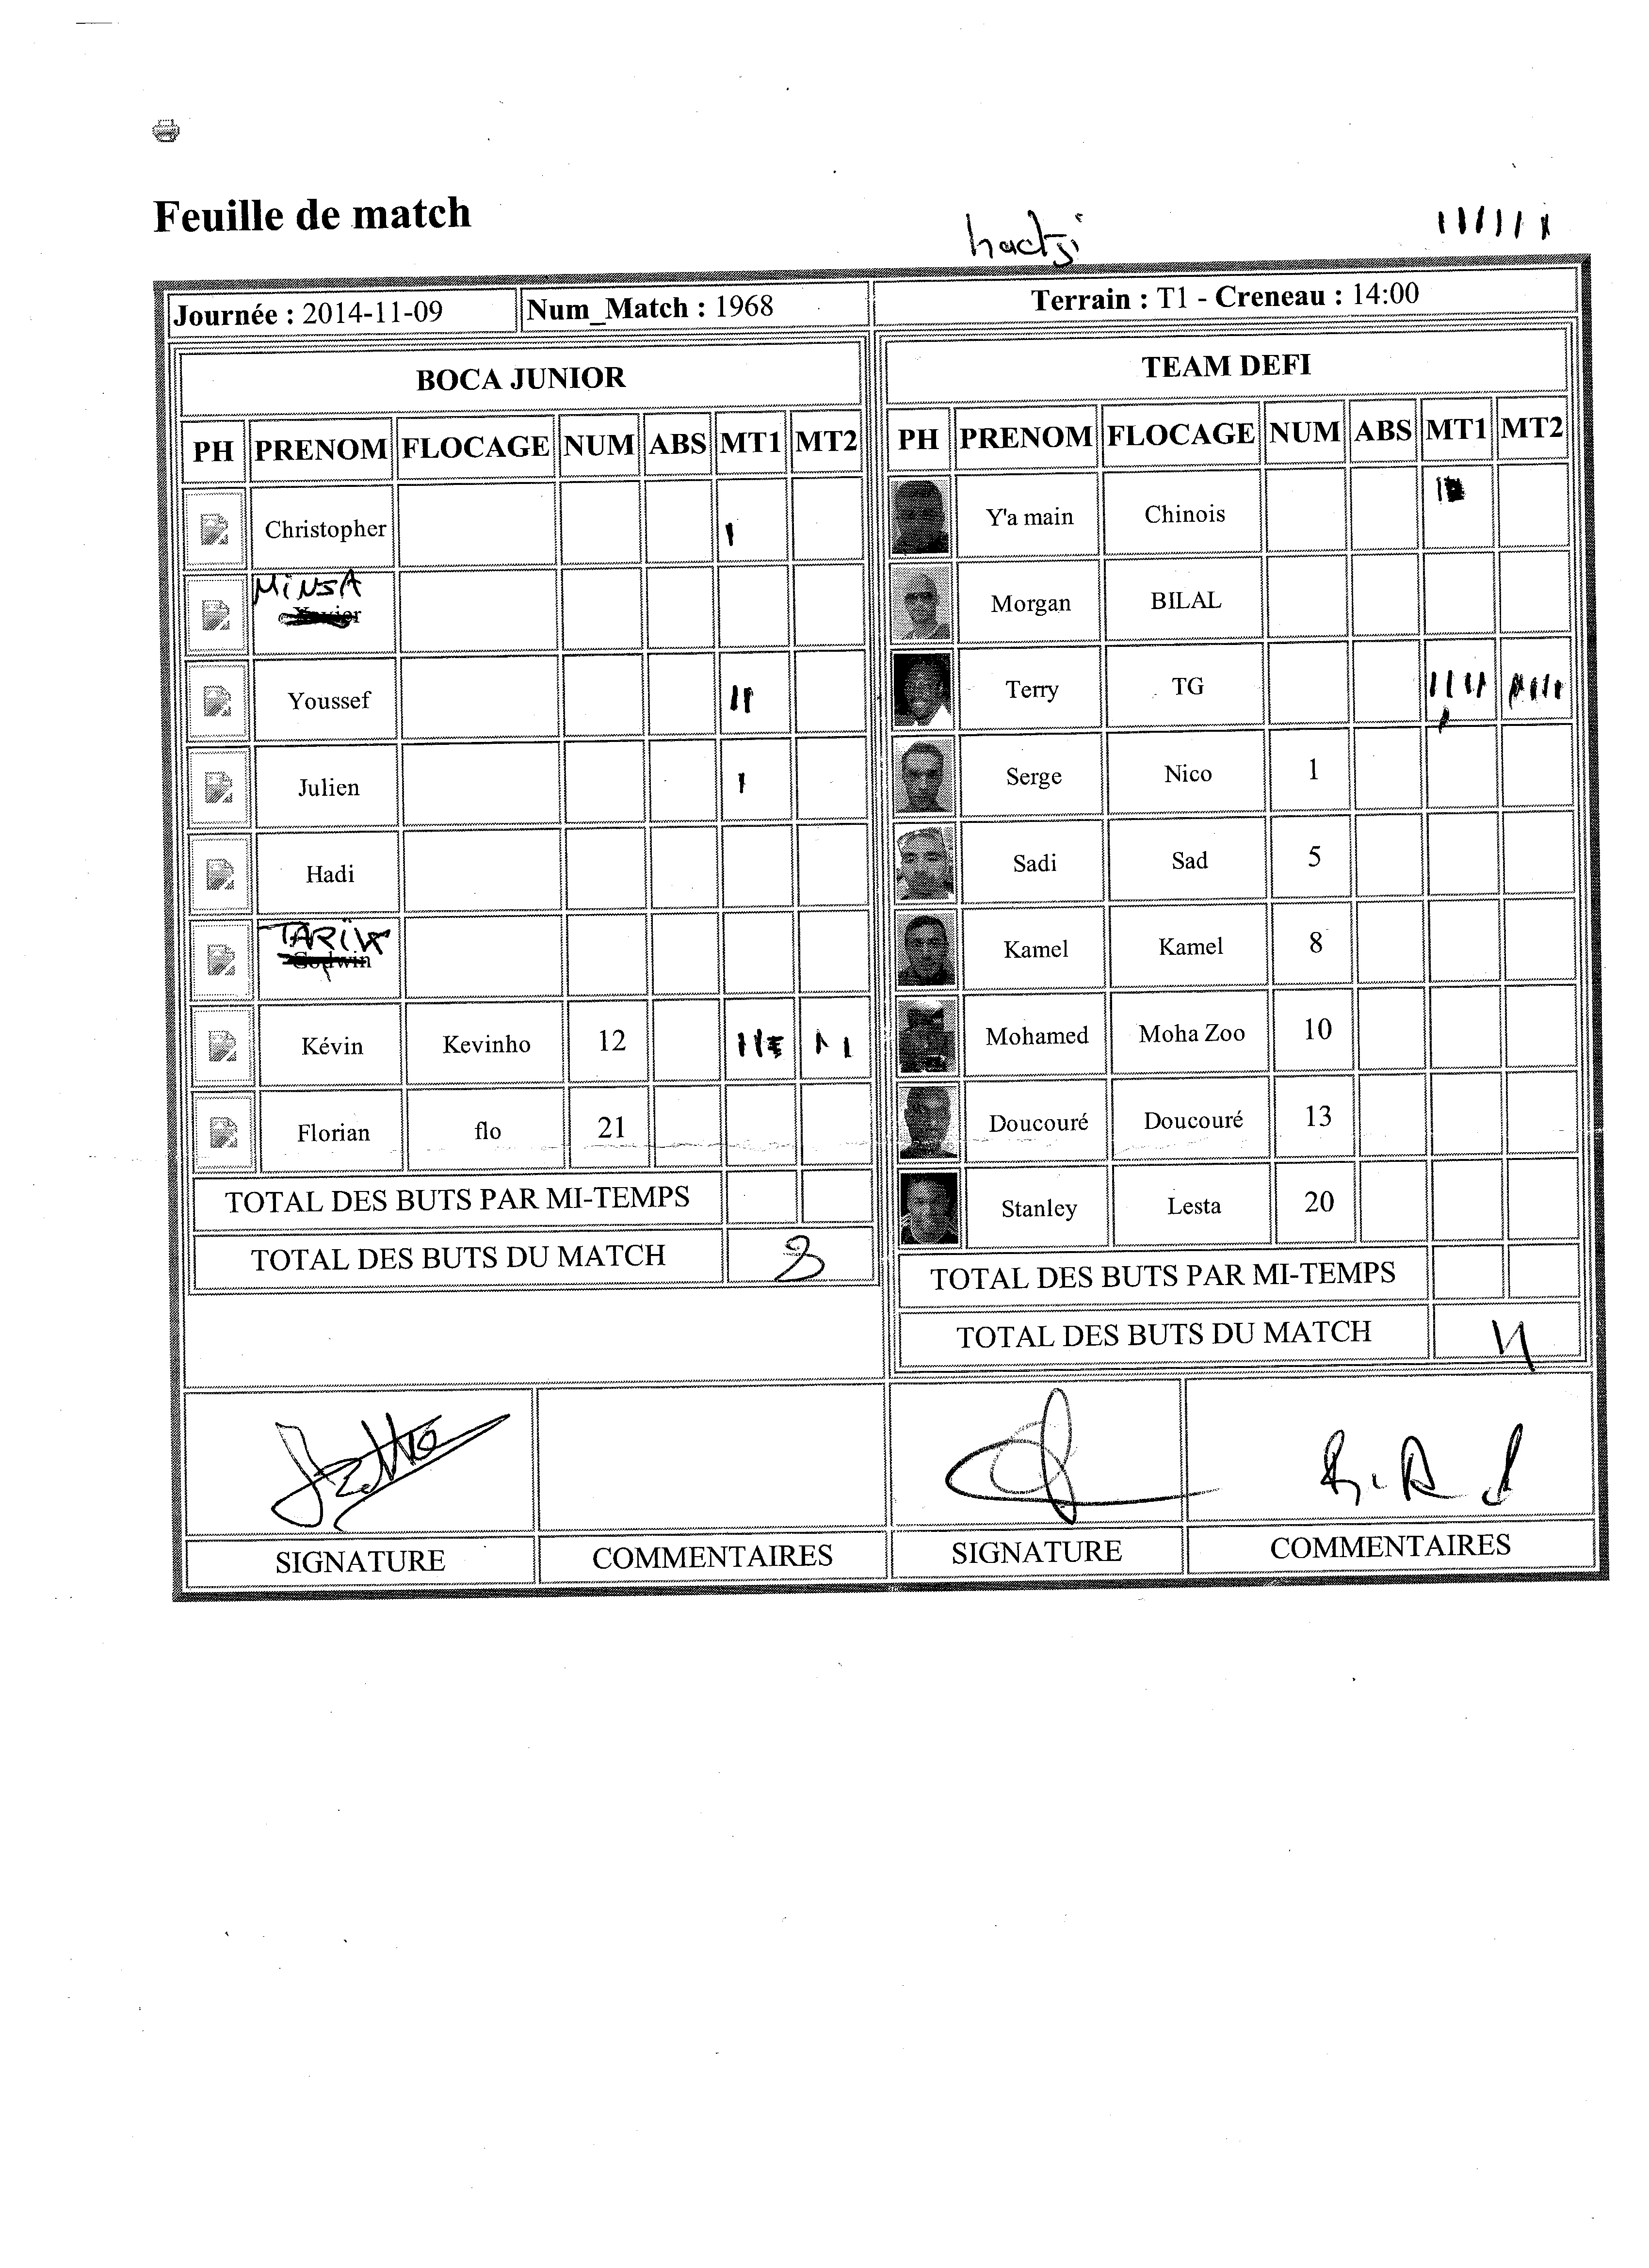 Feuille de match
hactji
Journée : 2014-11-09 Num_Match : 1968 Terrain : T1 - Creneau : 14:00
BOCA JUNIOR
PH PRENOM FLOCAGE NUM ABS MT1 MT2
Christopher
MiNSA
Youssef
Julien
Hadi
TARiK
Godwin
Kévin Kevinho 12
Florian flo 21
TOTAL DES BUTS PAR MI-TEMPS
TOTAL DES BUTS DU MATCH
SIGNATURE COMMENTAIRES
TEAM DEFI
PH PRENOM FLOCAGE NUM ABS MT1 MT2
Y'a main Chinois
Morgan BILAL
Terry TG
Serge Nico 1
Sadi Sad 5
Kamel Kamel 8
Mohamed Moha Zoo 10
Doucouré Doucouré 13
Stanley Lesta 20
TOTAL DES BUTS PAR MI-TEMPS
TOTAL DES BUTS DU MATCH
R.A.S
SIGNATURE COMMENTAIRES